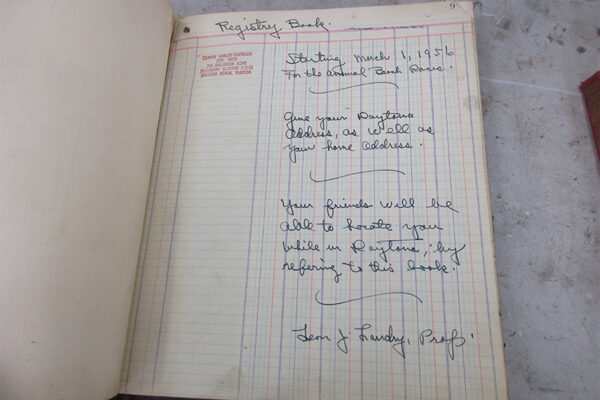 9
Registry Book.
HARLEY-DAVIDSON
BALLOUGH ROAD
TELEPHONE CLINTON
DAYTONA BEACH, FLORIDA
Starting March 1, 1956
For the Annual Beach Races.
Give your Daytona
Address, as well as
your home address.
Your friends will be
able to locate you
while in Daytona, by
refering to this book.
Leon J Landry, Prop.